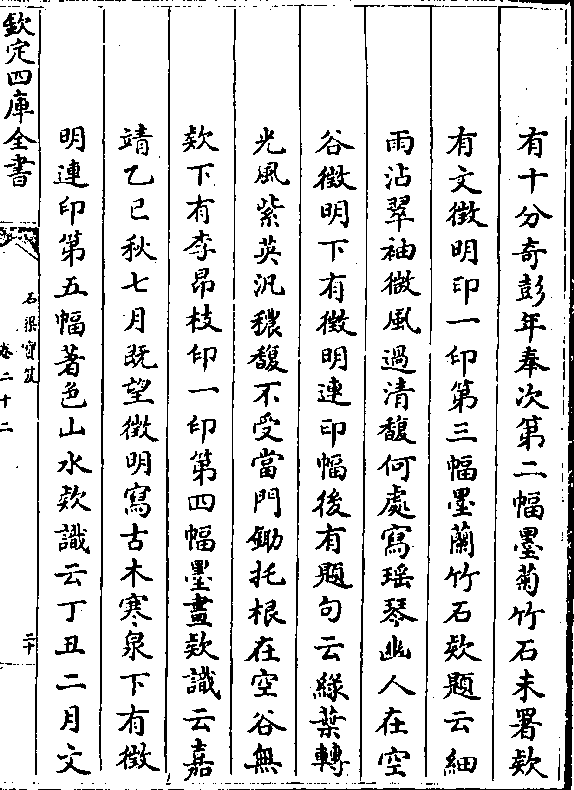 有十分奇彭年奉次第二幅墨菊竹石未署欵
有文徴明印一印第三幅墨蘭竹石欵題云細
雨沾翠袖微風過清馥何處寫瑶琴幽人在空
谷徴明下有徴明連印幅後有題句云緑葉轉
光風紫英汎穠馥不受當門鋤托根在空谷無
欵下有李昂枝印一印第四幅墨畫欵識云嘉
靖乙巳秋七月既望徴明寫古木寒泉下有徴
明連印第五幅著色山水欵識云丁丑二月文
欽定四庫全書
石渠寳笈
卷二十二
二十